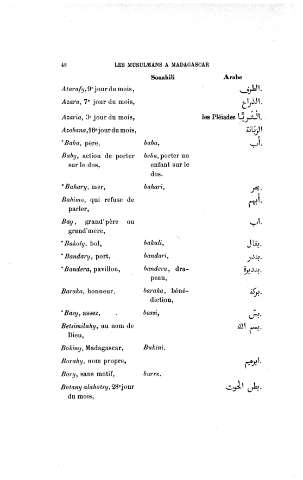 48 LES MUSULMANS A MADAGASCAR
Souahili Arabe
Atarafy, 9e jour du mois, الطرف.
Azara, 7e jour du mois, الذراع.
Azaria, 3e jour du mois, les Pléiades الثريّا.
Azobana, 16e jour du mois, الزبانة
*Baba, père, baba, أب.
Baby, action de porter beba, porter un
sur le dos, enfant sur le
dos.
*Bahary, mer, bahari, بحر.
Bahimo, qui refuse de أبهم.
parler,
Bay, grand'père ou اب.
grand'mère,
*Bakoly, bol, bakuli, بقال.
*Bandary, port, bandari, بندر.
*Bandera, pavillon, bandera, dra-
peau,
Baraka, honneur, baraka, béné- بركة.
diction,
*Basy, assez, bassi,
Betsimilahy, au nom de بسم الله
Dieu,
Bokimy, Madagascar, Bukini.
Borahy, nom propre, ابرهيم.
Bory, sans motif, burre.
Botany alahotsy, 28e jour بطن الحوت.
du mois,